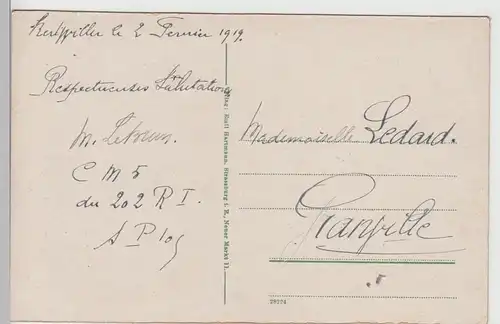 le 2 Fevrier 1919.
Respectueuses Salutations
M.
C M 5
du 202 R I.
S P 109
Verlag: Emil Hartmann, Strassburg i. E., Neuer Markt 11.
Mademoiselle Ledard.
Granville